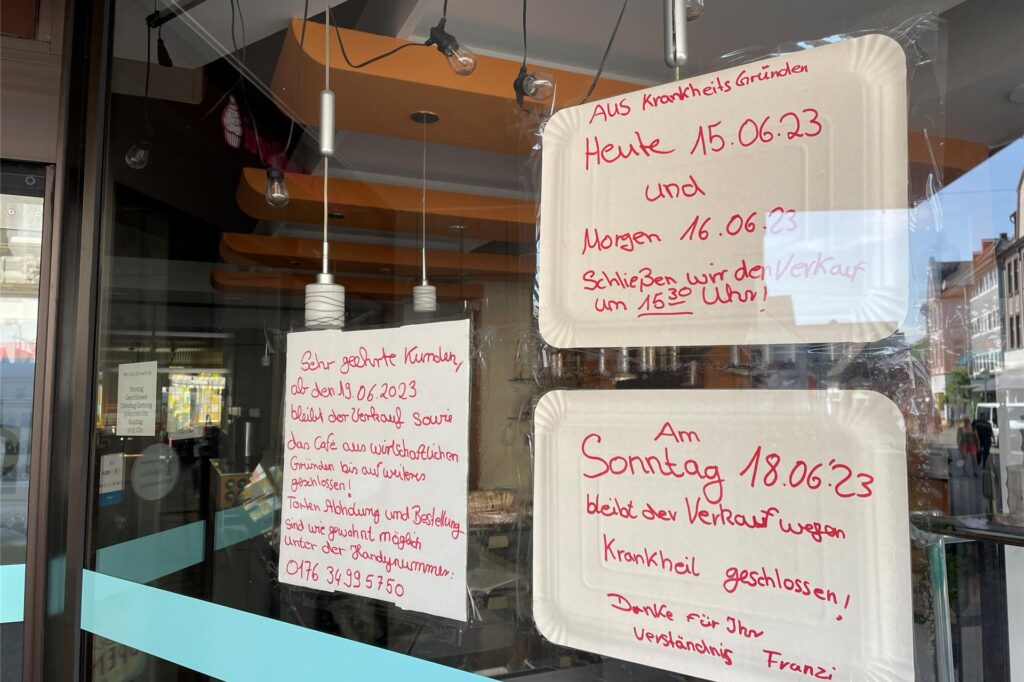 Aus Krankheits Gründen
Heute 15.06.23
und
Morgen 16.06.23
Schließen wir den Verkauf
um 15³⁰ Uhr!
Sehr geehrte Kunden,
ab den 19.06.2023
bleibt der Verkauf sowie
das Café aus wirtschaftlichen
Gründen bis auf weiteres
geschlossen!
Torten Abholung und Bestellung
sind wie gewohnt möglich
Unter der Handynummer:
0176 34995750
Am
Sonntag 18.06.23
bleibt der Verkauf wegen
Krankheit geschlossen!
Danke für Ihr
Verständnis Franzi
Montag
Geschlossen
Dienstag-Samstag
Sonntag